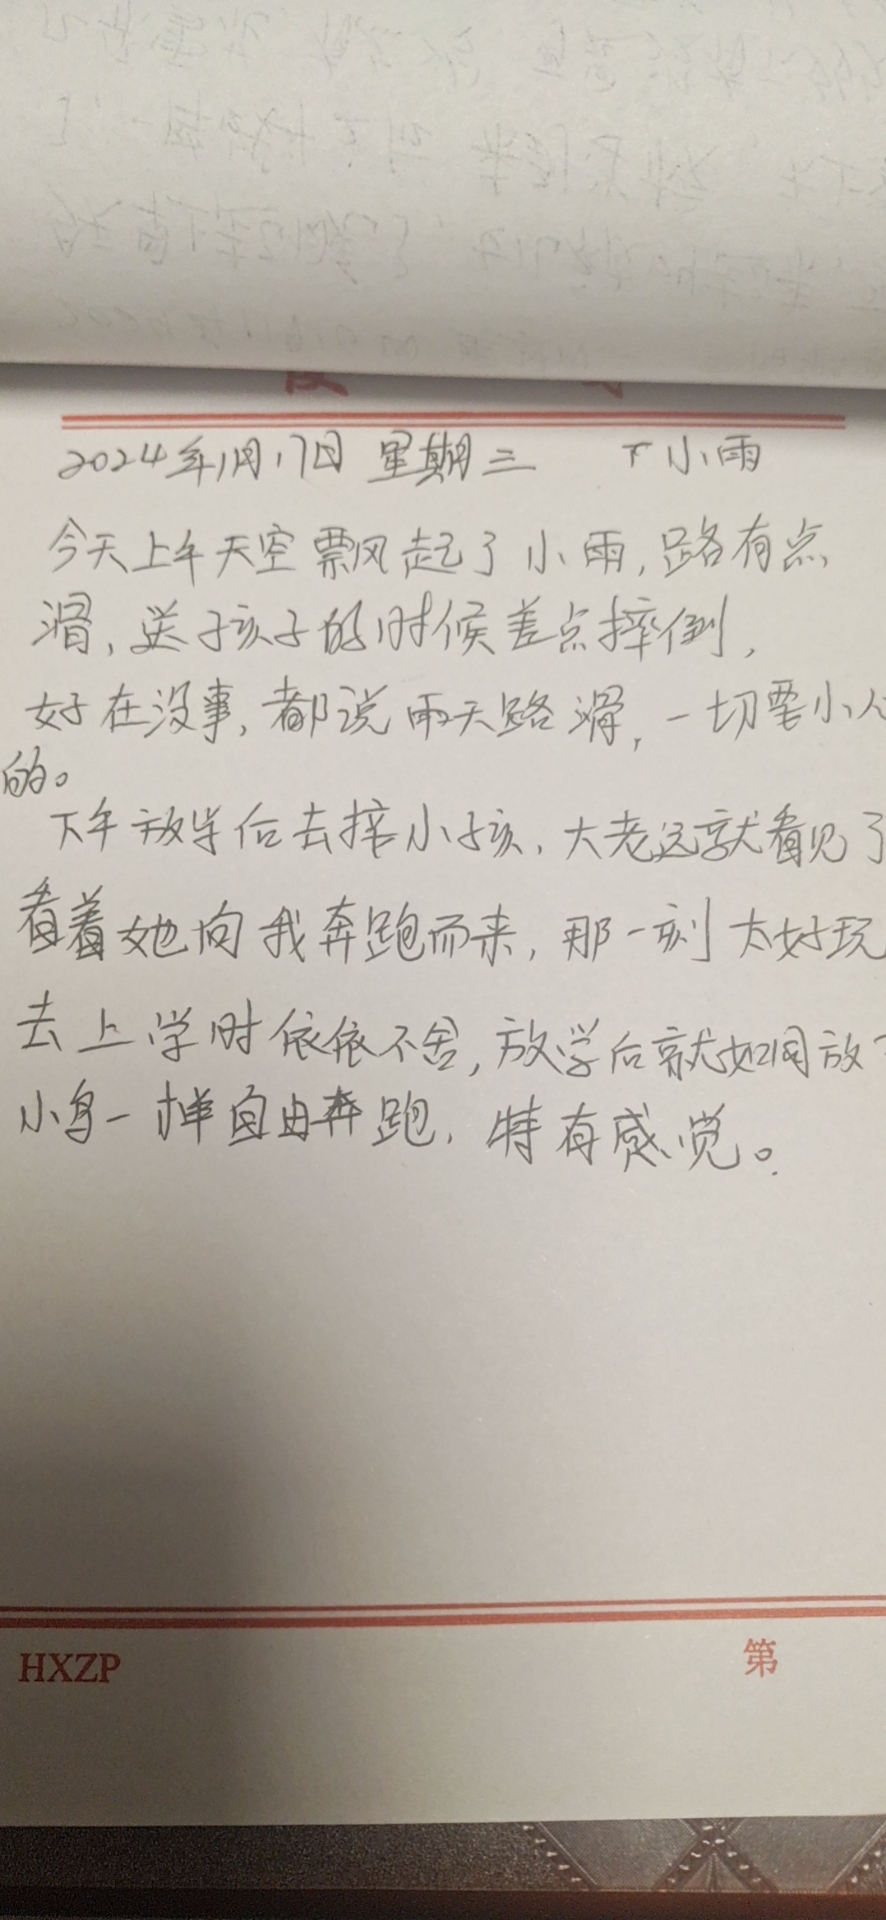 2024年1月17日 星期三 下小雨
今天上午天空飘起了小雨,路有点
滑,送孩子的时候差点摔倒,
好在没事,都说雨天路滑,一切要小心
的。
下午放学后去接小孩,大老远就看见了
看着她向我奔跑而来,那一刻太好玩
去上学时依依不舍,放学后就如同放
小鸟一样自由奔跑,特有感觉。
HXZP 第